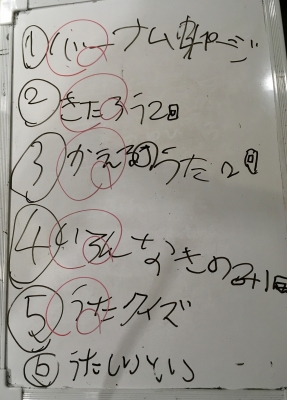 ①バーナム車ページ
②きたろう2回
③かえるのうた2回
④いろんなきのみ1回
⑤うたクイズ
⑥うたしいとい